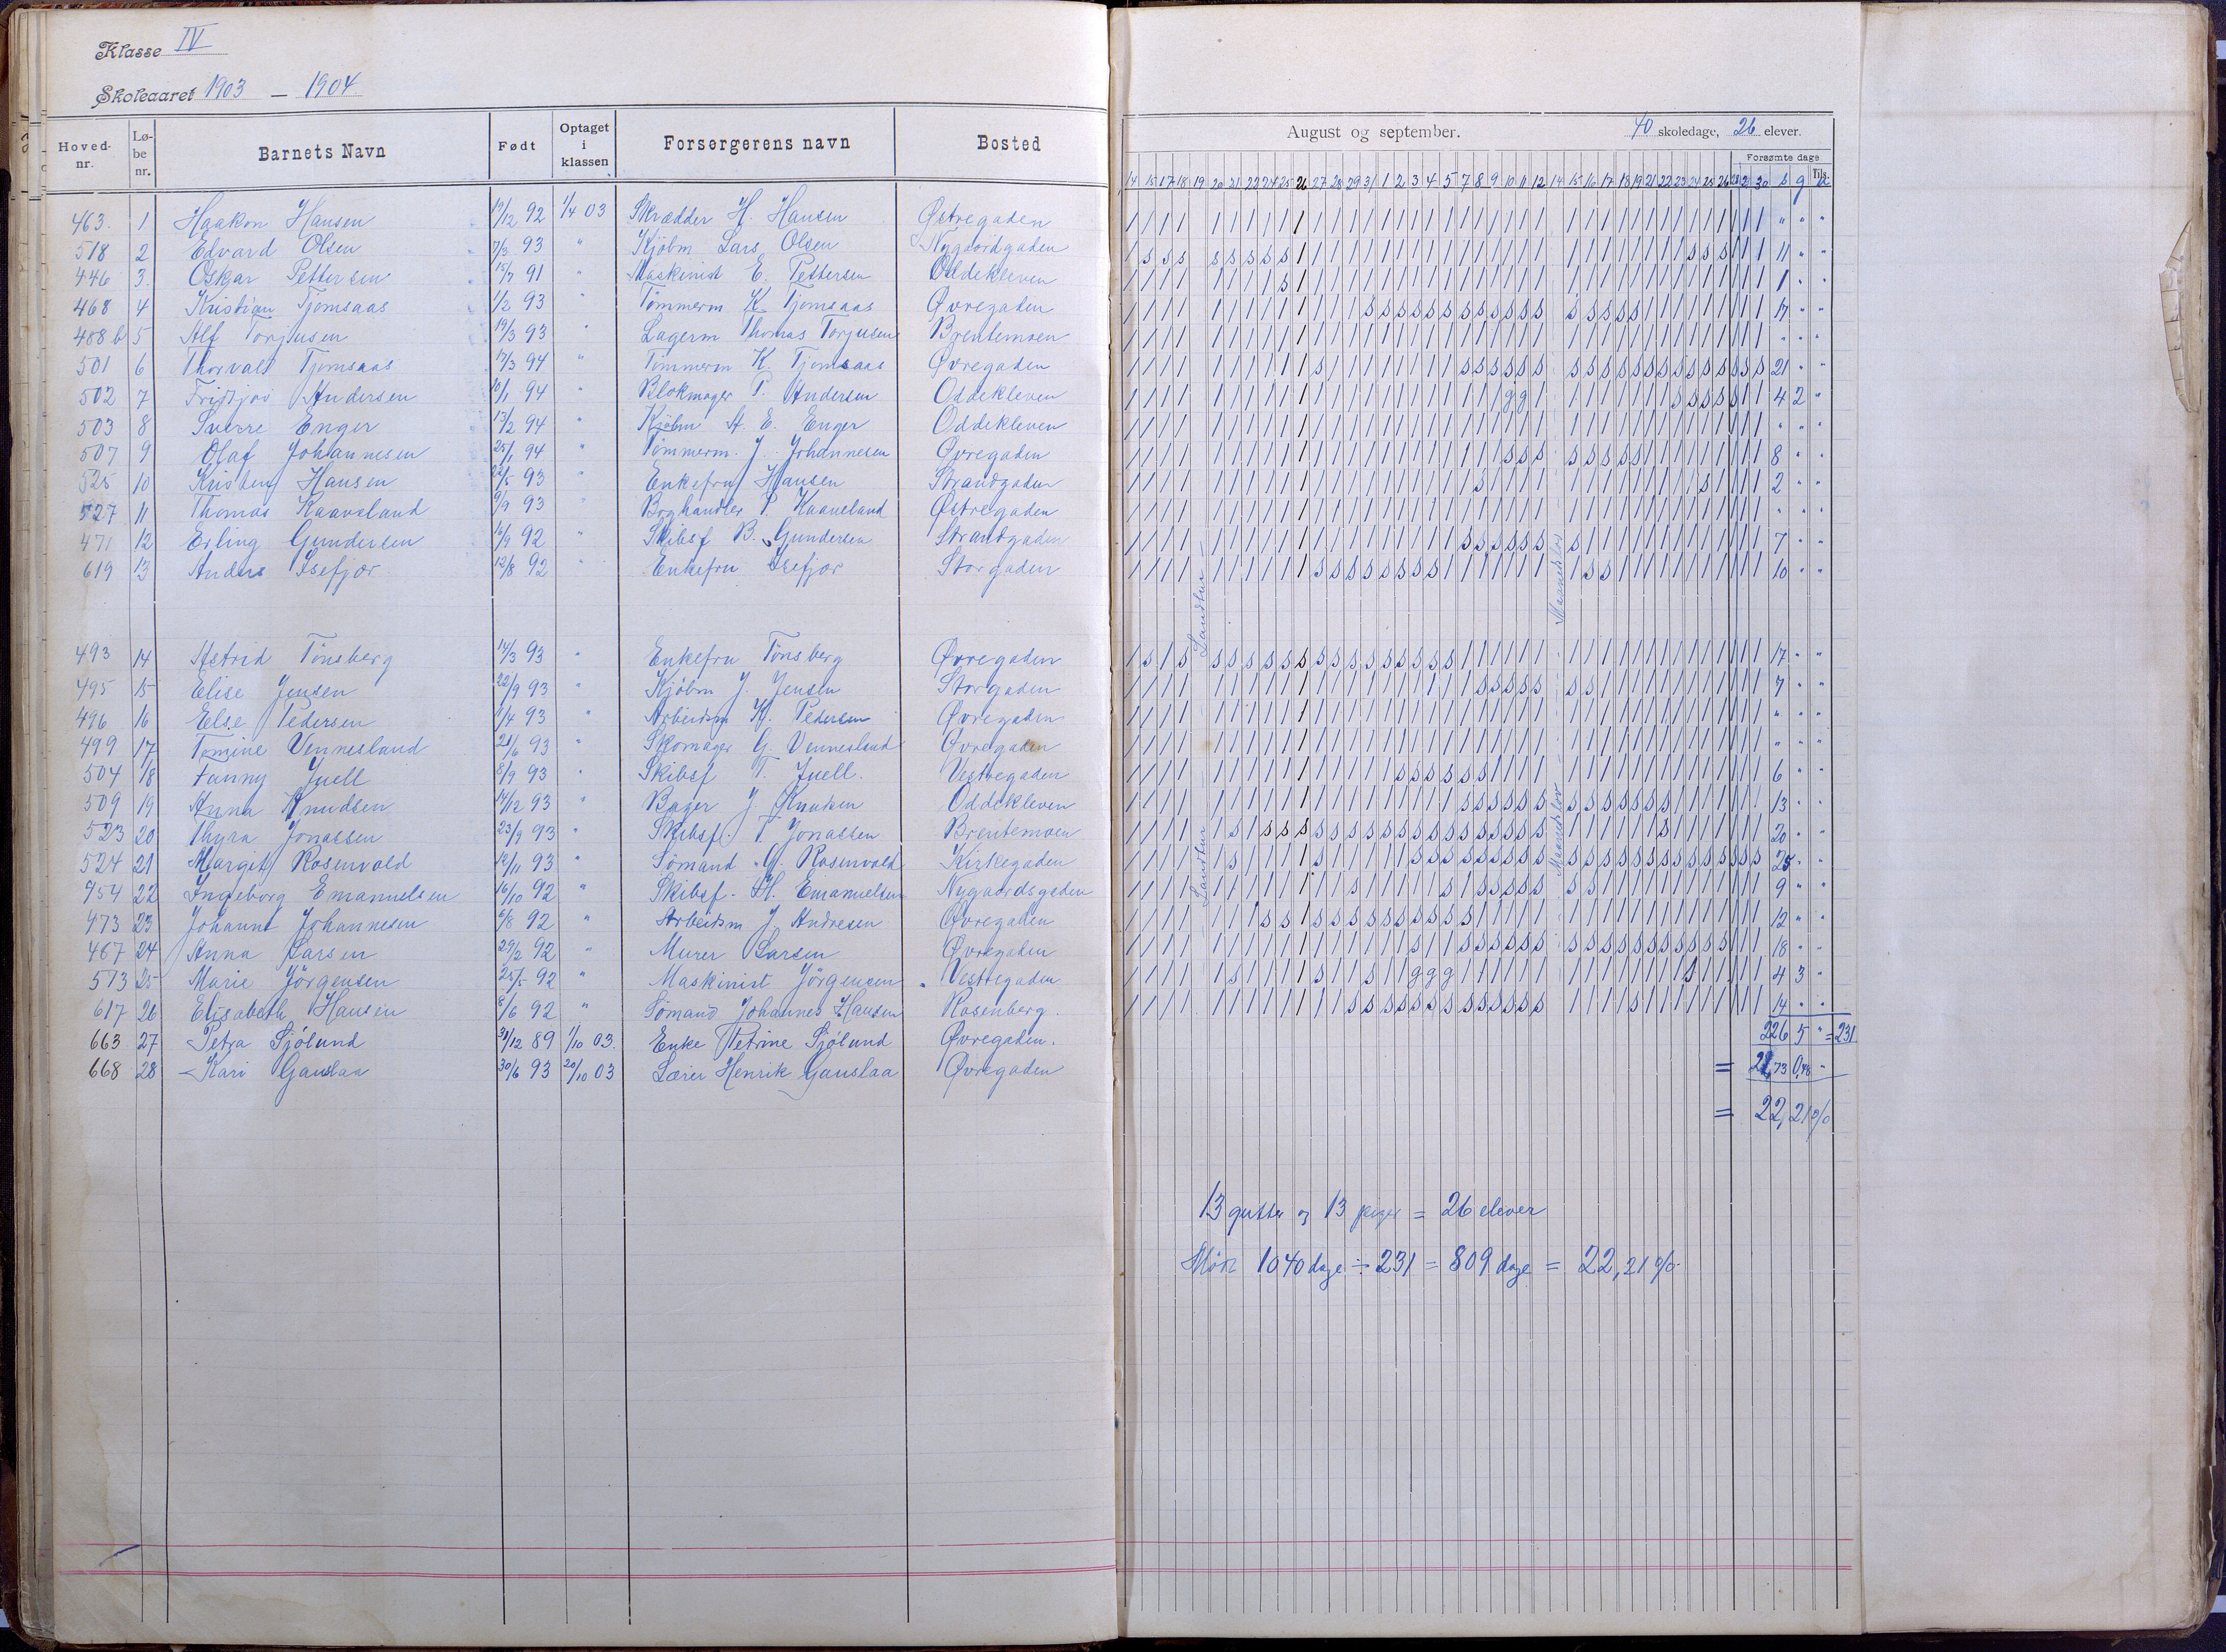 Klasse IV
Skoleaaret 1903 – 1904
Hoved-nr. Lø-be nr. Barnets Navn Født Optaget i klassen Forsørgerens navn Bosted
463 1 Haakon Hansen 19/12 92 1/4 03 Skrædder H. Hansen Østregaden
518 2 Edvard Olsen 7/3 93 " Kjøbm Lars Olsen Nygaardgaden
446 3. Oskar Pettersen 15/7 91 " Maskinist E. Pettersen Oddekleven
468 4 Kristian Tjomsaas 1/2 93 " Tømmerm K Tjomsaas Øvregaden
488 b 5 Alf Torjusen 19/3 93 " Lagerm Thomas Torjusen Brentemoen
501 6 Thorvald Tjomsaas 17/3 94 " Tømmerm K. Tjomsaas Øvregaden
502 7 Fridtjov Andersen 10/1 94 " Blokmager P. Andersen Oddekleven
503 8 Sverre Enger 13/2 94 " Kjøbm A. E. Enger Oddekleven
507 9 Olaf Johannesen 25/1 94 " Tømmerm. J. Johannesen Øvregaden
525 10 Kristen Hansen 22/5 93 " Enkefru Hansen Strandgaden
527 11 Thomas Kaaveland 9/9 93 " Boghandler P. Kaaveland Østregaden
471 12 Erling Gundersen 16/9 92 " Skibsf B. Gundersen Strandgaden
619 13 Anders Isefjør 12/8 92 " Enkefru Isefjør Storgaden
493 14 Astrid Tønsberg 14/3 93 " Enkefru Tønsberg Øvregaden
495 15 Elise Jensen 22/9 93 " Kjøbm J. Jensen Storgaden
496 16 Else Pedersen 1/4 93 " Arbeidsm K. Pedersen Øvregaden
499 17 Tomine Vennesland 21/6 93 " Skomager G. Vennesland Øvregaden
504 18 Fanny Juell 8/9 93 " Skibsf T. Juell. Vestregaden
509 19 Anna Knudsen 14/12 93 " Bager J Knudsen Oddekleven
523 20 Thyra Jonassen 23/9 93 " Skibsf. T. Jonassen Brentemoen
524 21 Margit Rosenvold 12/11 93 " Sømand G. Rosenvold Kirkegaden
454 22 Ingeborg Emanuelsen 16/10 92 " Skibsf. H. Emanuelsen Nygaardsgaden
473 23 Johanne Johannesen 6/8 92 " Arbeidsm J. Andresen Øvregaden
467 24 Anna Larsen 29/2 92 " Murer Larsen Øvregaden
513 25 Marie Jörgensen 25/5 92 " Maskinist Jörgensen Vestregaden
617 26 Elisabeth Hansen 8/6 92 " Sømand Johannes Hansen Rosenberg.
663 27 Petra Sjölund 31/12 89 1/10 03. Enke Petrine Sjölund Øvregaden.
668 28 Kari Gauslaa 30/6 93 20/10 03 Lærer Henrik Gauslaa Øvregaden
August og september. 40 skoledage, 26 elever.
Forsømte dage
14 15 17 18 19 20 21 22 24 25 26 27 28 29 31 1 2 3 4 5 7 8 9 10 11 12 14 15 16 17 18 19 21 22 23 24 25 26 28 29 30 s g Tils. u
" " "
11 " "
1 " "
17 " "
" " "
21 " "
4 2 "
" " "
8 " "
2 " "
" " "
7 " "
10 " "
Landtur
Maanedslov
17 " "
7 " "
" " "
" " "
6 " "
13 " "
20 " "
25 " "
9 " "
12 " "
18 " "
4 3 "
14 " "
Landtur
Maanedslov
226 5 " = 231
= 21,73 0,48 "
= 22,21 %
13 gutter og 13 piger = 26 elever
Mødt 1040 dage ÷ 231 = 809 dage = 22,21 %